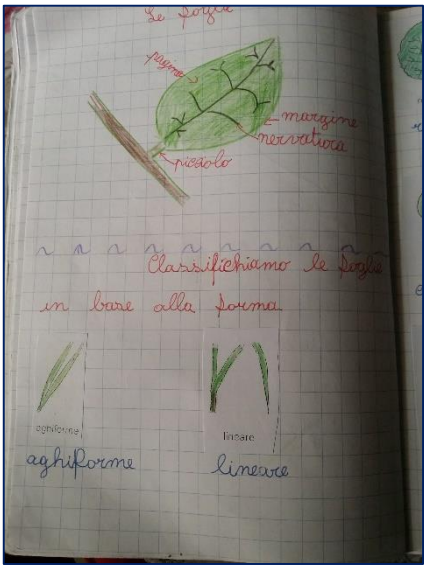 Le foglie
pagina
margine
nervatura
picciolo
Classifichiamo le foglie
in base alla forma
aghiforme
lineare
aghiforme
lineare